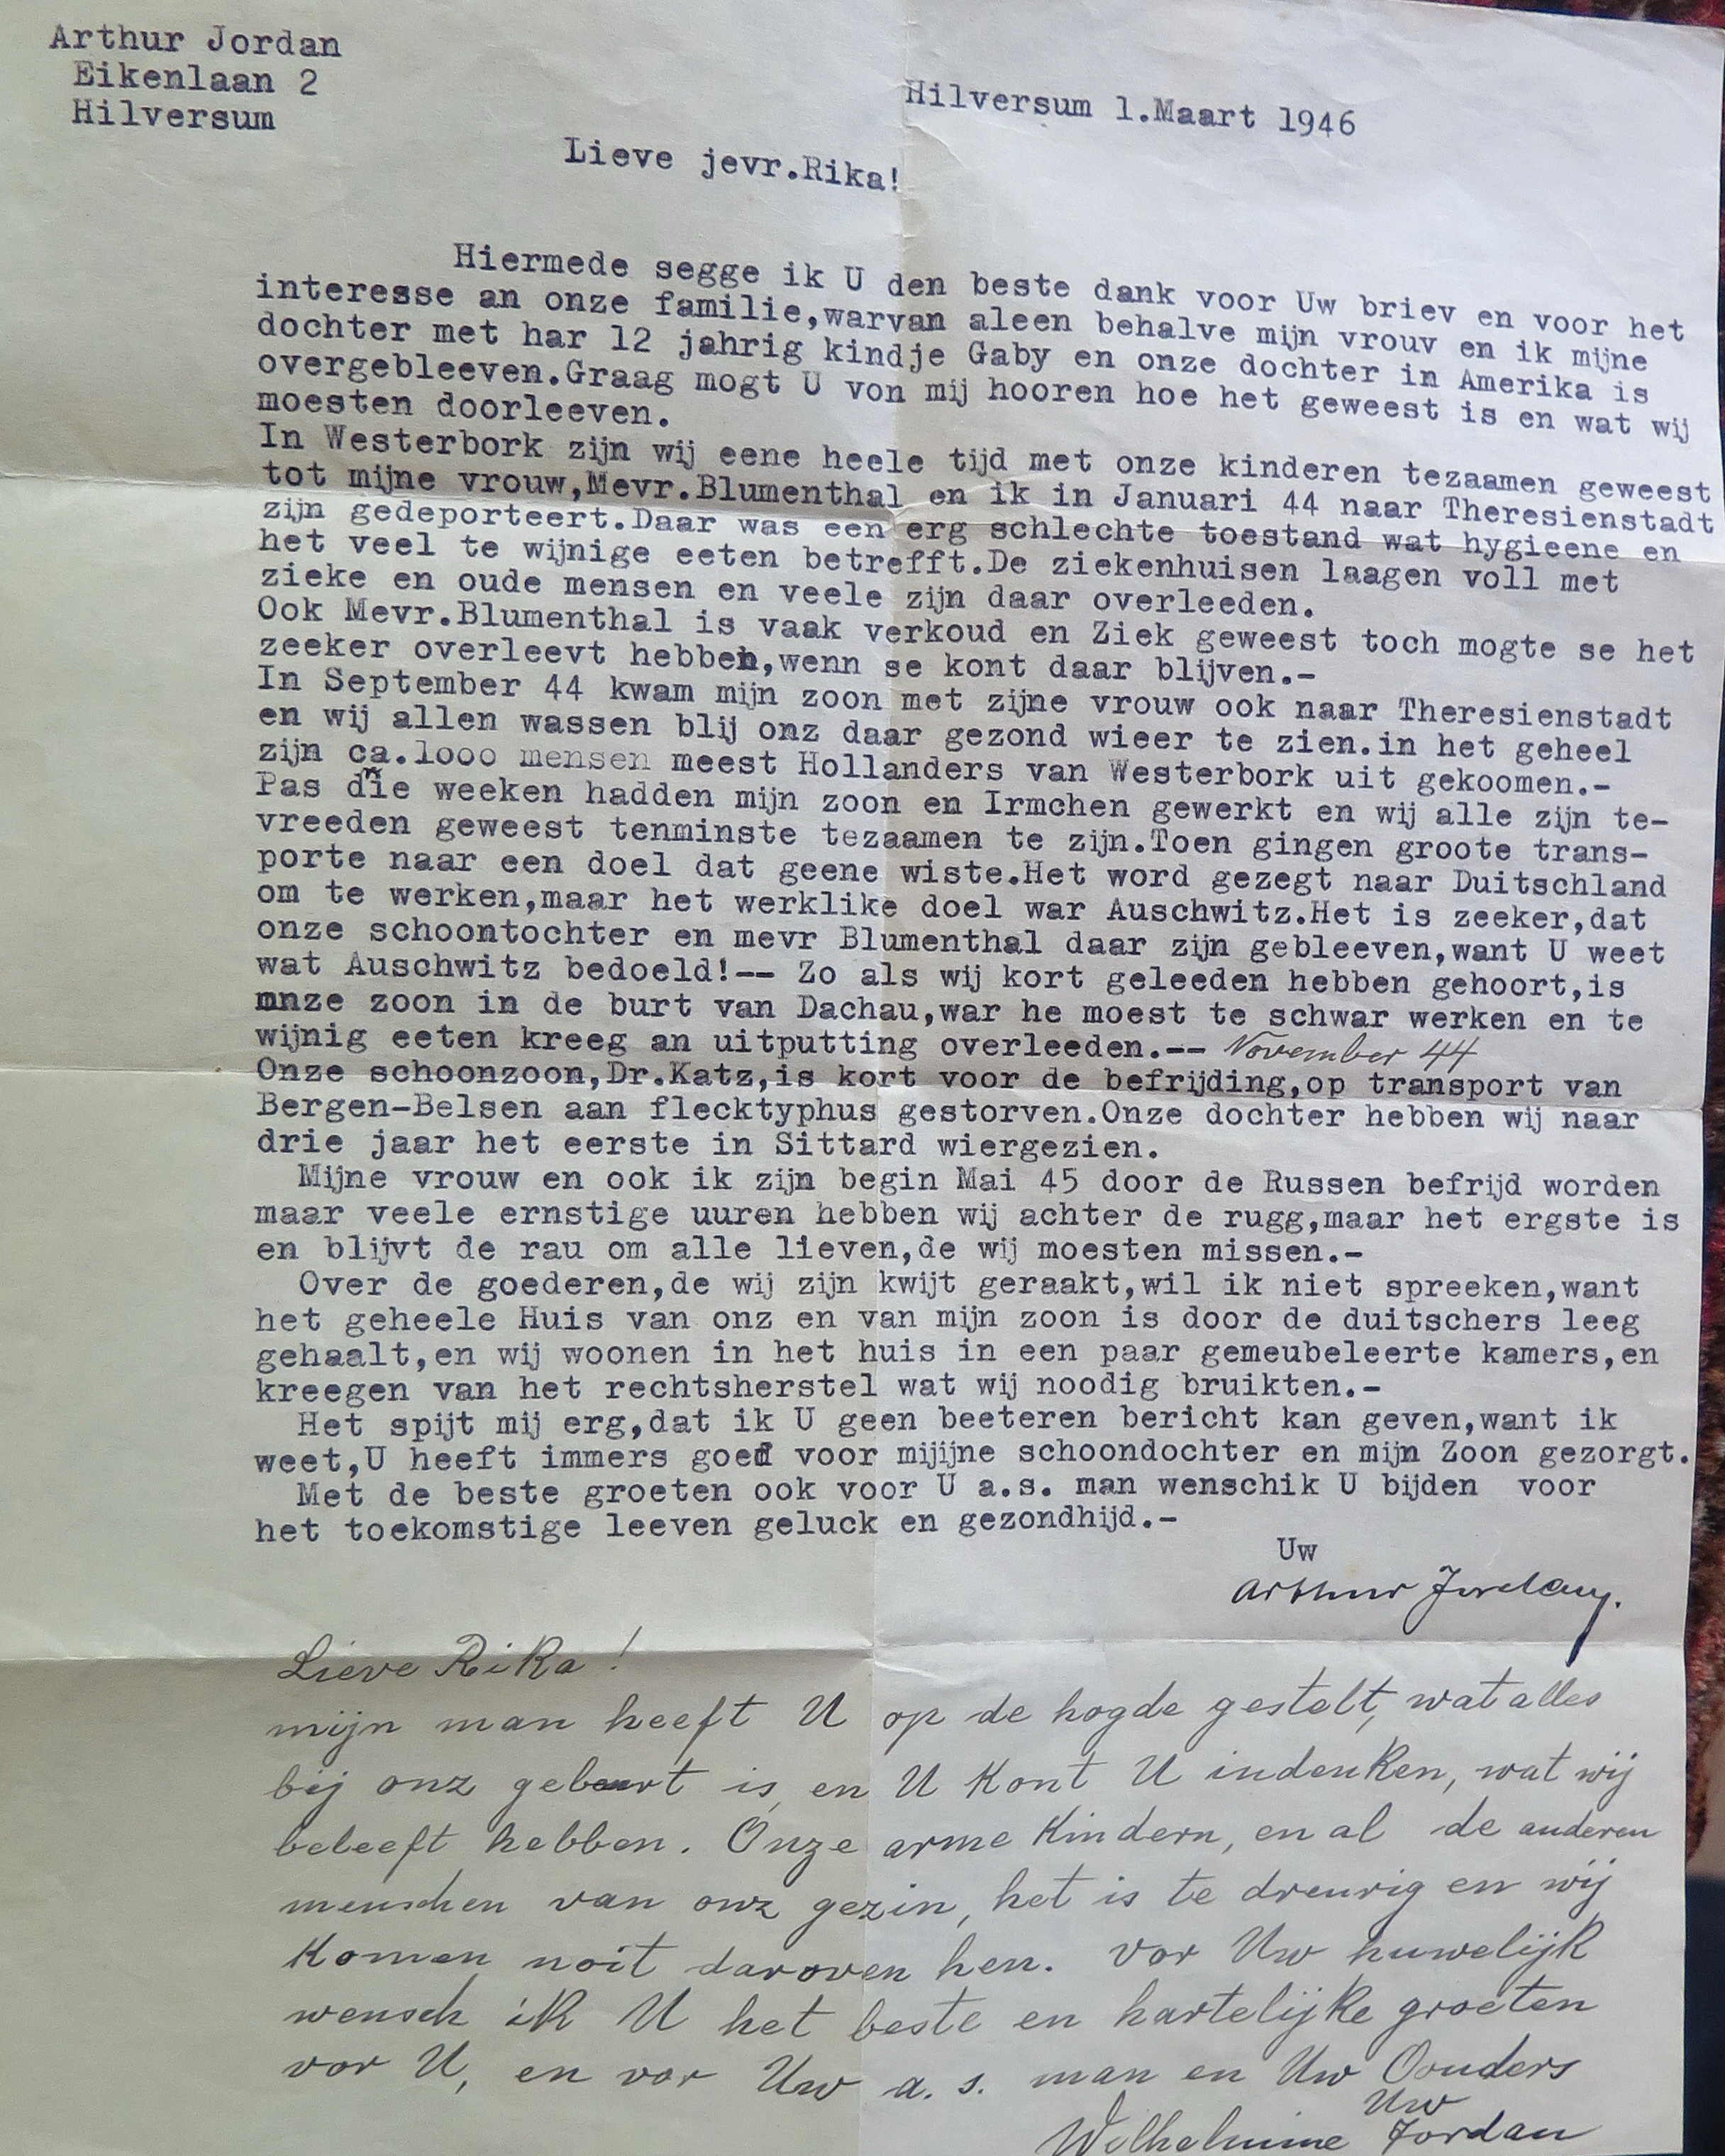 Arthur Jordan
Eikenlaan 2
Hilversum
Hilversum 1.Maart 1946
Lieve jevr.Rika!
Hiermede segge ik U den beste dank voor Uw briev en voor het
interesse an onze familie,warvan aleen behalve mijn vrouv en ik mijne
dochter met har 12 jahrig kindje Gaby en onze dochter in Amerika is
overgebleeven.Graag mogt U von mij hooren hoe het geweest is en wat wij
moesten doorleeven.
In Westerbork zijn wij eene heele tijd met onze kinderen tezaamen geweest
tot mijne vrouw,Mevr.Blumenthal en ik in Januari 44 naar Theresienstadt
zijn gedeporteert.Daar was een erg schlechte toestand wat hygieene en
het veel te wijnige eeten betrefft.De ziekenhuisen laagen voll met
zieke en oude mensen en veele zijn daar overleeden.
Ook Mevr.Blumenthal is vaak verkoud en Ziek geweest toch mogte se het
zeeker overleevt hebben,wenn se kont daar blijven.-
In September 44 kwam mijn zoon met zijne vrouw ook naar Theresienstadt
en wij allen wassen blij onz daar gezond wieer te zien.in het geheel
zijn ca.1ooo mensen meest Hollanders van Westerbork uit gekoomen.-
Pas drie weeken hadden mijn zoon en Irmchen gewerkt en wij alle zijn te-
vreeden geweest tenminste tezaamen te zijn.Toen gingen groote trans-
porte naar een doel dat geene wiste.Het word gezegt naar Duitschland
om te werken,maar het werklike doel war Auschwitz.Het is zeeker,dat
onze schoontochter en mevr Blumenthal daar zijn gebleeven,want U weet
wat Auschwitz bedoeld!-- Zo als wij kort geleeden hebben gehoort,is
onze zoon in de burt van Dachau,war he moest te schwar werken en te
wijnig eeten kreeg an uitputting overleeden.-- November 44
Onze schoonzoon,Dr.Katz,is kort voor de befrijding,op transport van
Bergen-Belsen aan flecktyphus gestorven.Onze dochter hebben wij naar
drie jaar het eerste in Sittard wiergezien.
Mijne vrouw en ook ik zijn begin Mai 45 door de Russen befrijd worden
maar veele ernstige uuren hebben wij achter de rugg,maar het ergste is
en blijvt de rau om alle lieven,de wij moesten missen.-
Over de goederen,de wij zijn kwijt geraakt,wil ik niet spreeken,want
het geheele Huis van onz en van mijn zoon is door de duitschers leeg
gehaalt,en wij woonen in het huis in een paar gemeubeleerte kamers,en
kreegen van het rechtsherstel wat wij noodig bruikten.-
Het spijt mij erg,dat ik U geen beeteren bericht kan geven,want ik
weet,U heeft immers goed voor mijijne schoondochter en mijn Zoon gezorgt.
Met de beste groeten ook voor U a.s. man wenschik U bijden voor
het toekomstige leeven geluck en gezondhijd.-
Uw
Arthur Jordan.
Lieve Rika!
mijn man heeft U op de hogde gestelt, wat alles
bij onz gebeurt is, en U kont U indenken, wat wij
beleeft hebben. Onze arme Kindern, en al de anderen
menschen van onz gezin, het is te dreurig en wij
komen noit daroven hen. Vor Uw huwelijk
wensch ik U het beste en hartelijke groeten
vor U, en vor Uw a. s. man en Uw Oouders
Uw
Wilhelmine Jordan